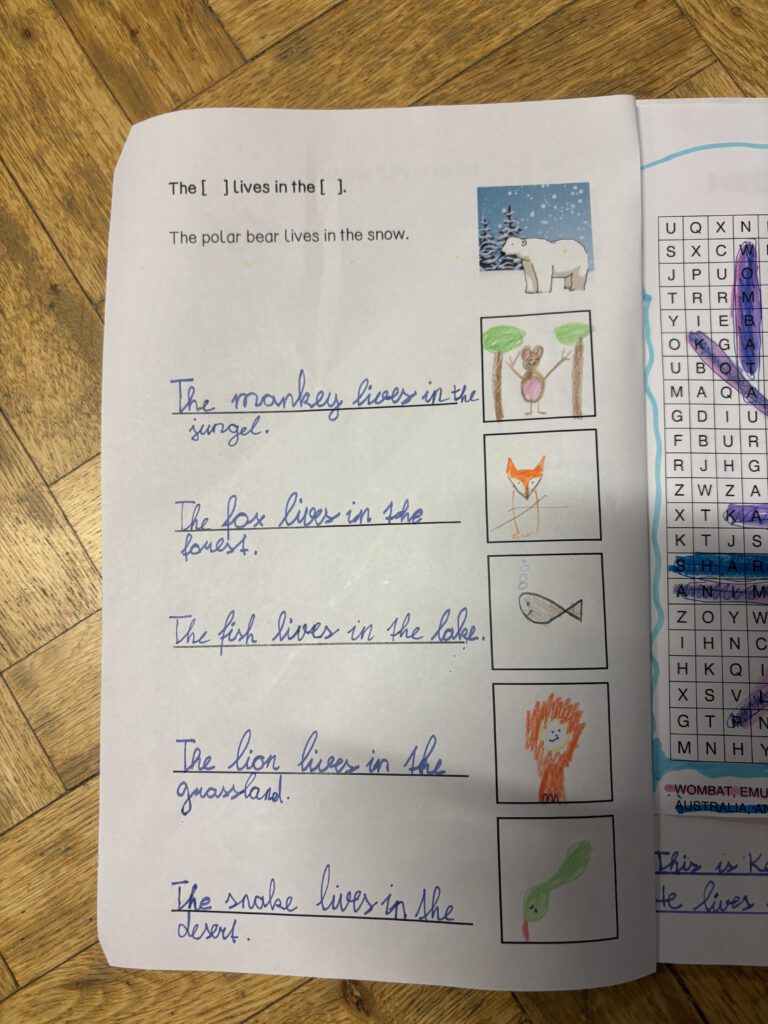 The [ ] lives in the [ ].
The polar bear lives in the snow.
The monkey lives in the
jungel.
The fox lives in the
forest.
The fish lives in the lake.
The lion lives in the
grassland.
The snake lives in the
desert.
U Q X N
S X C W
J P U O
T R R M
Y I E B
O K G A
U B O T
M A Q A
G D I U
F B U R
R J H G
Z W Z A
X T K A
K T J S
S H A R
A N I M
Z O Y W
I H N C
H K Q I
X S V L
G T P N
M N H Y
WOMBAT, EMU
AUSTRALIA, AN
This is K
He lives